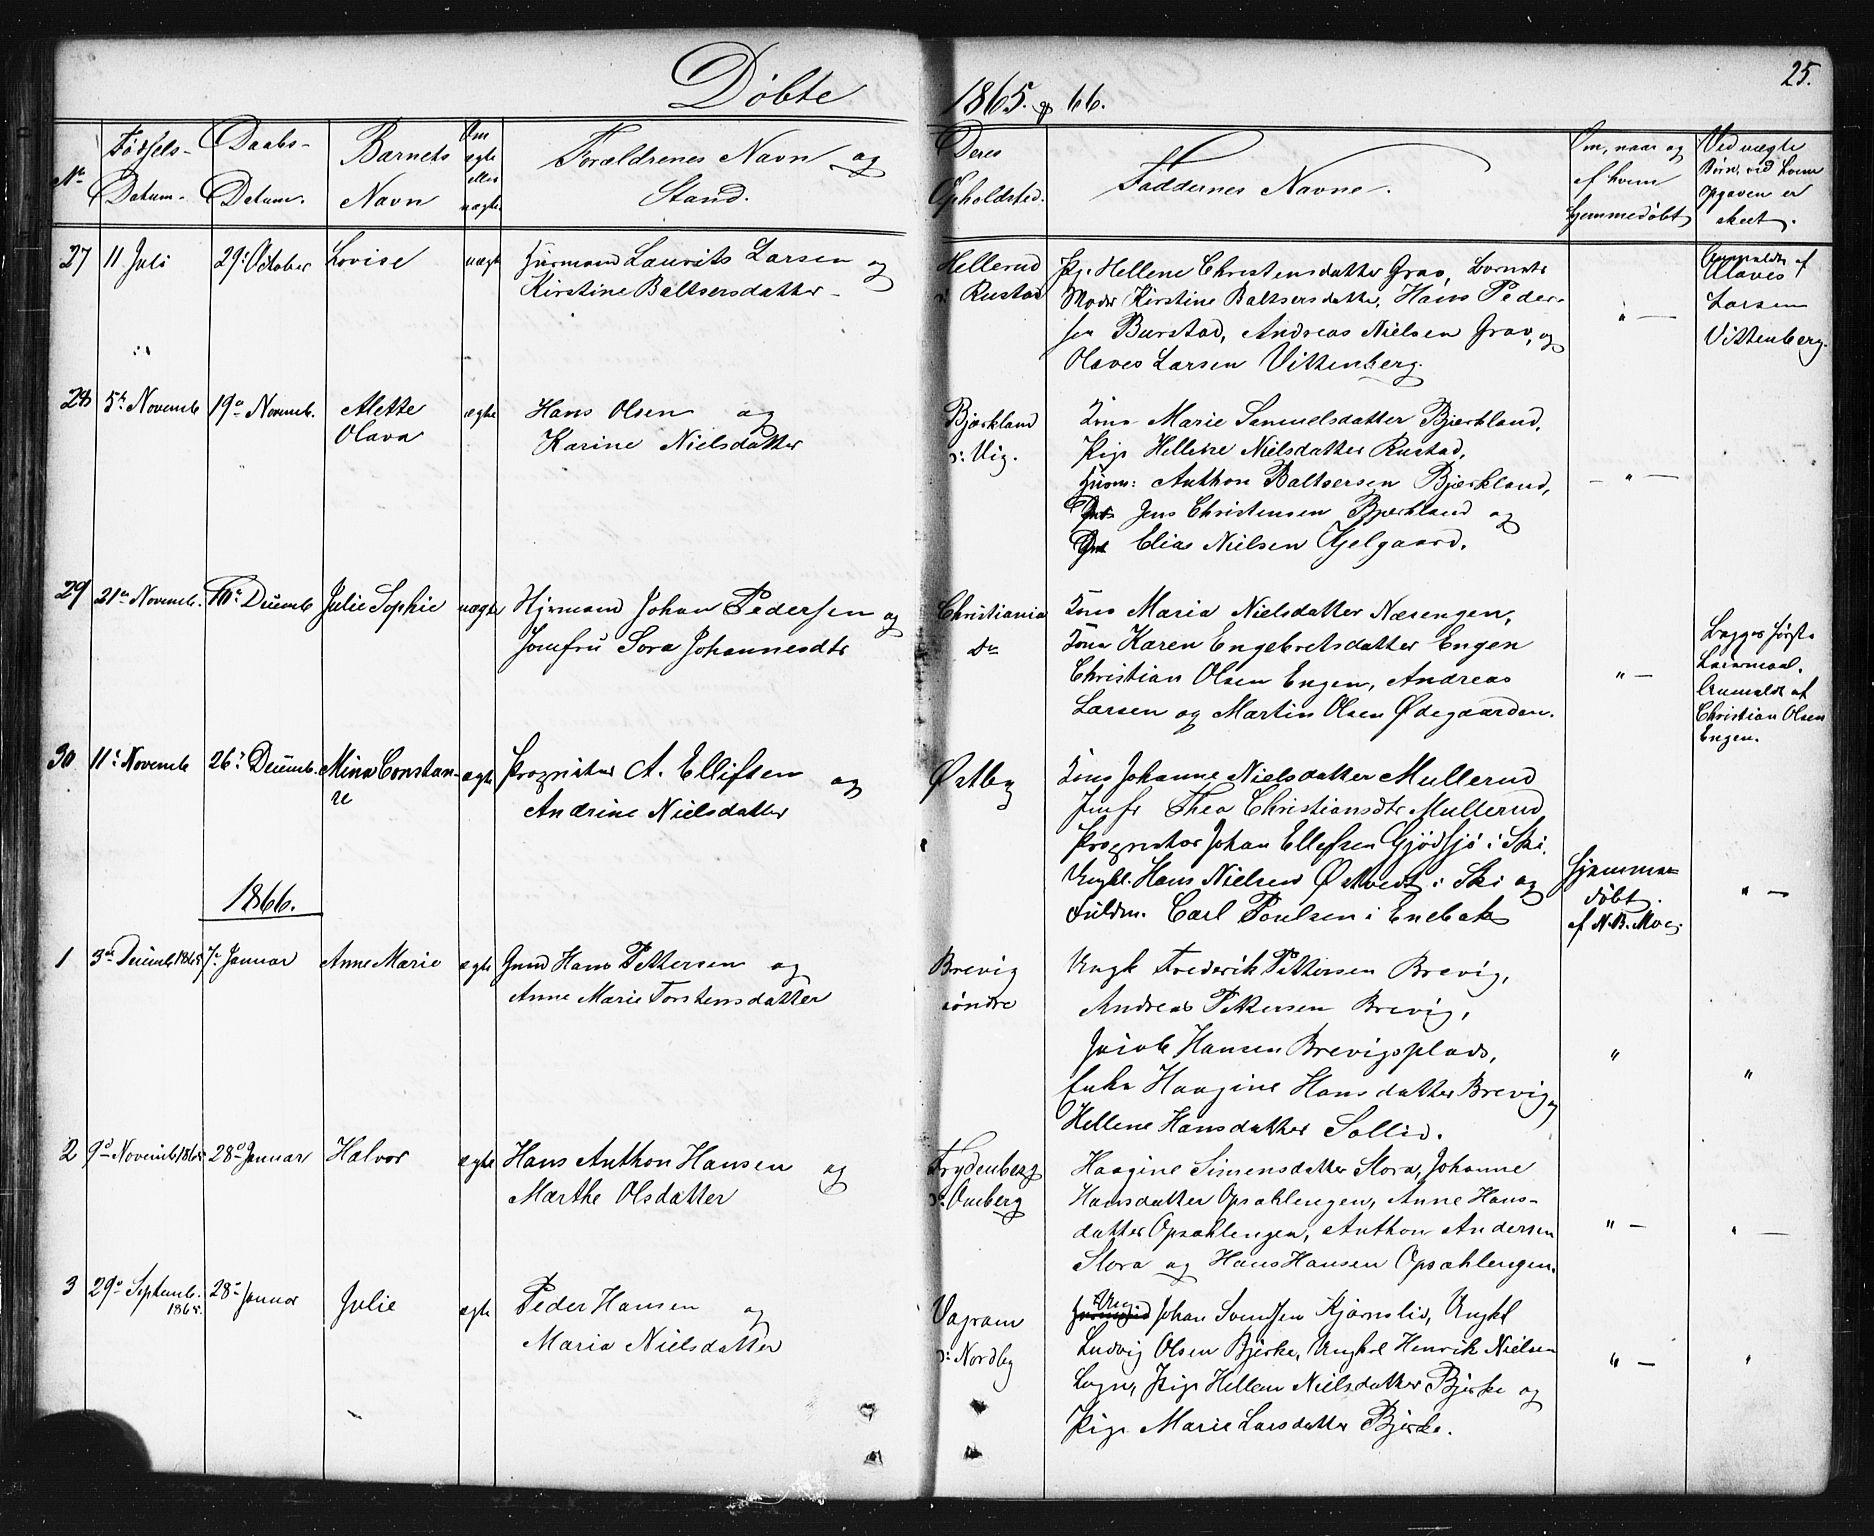 Døbte 1865. og 66.
25.
No
Fødsels-
Datum.
Daabs-
Datum.
Barnets
Navn
Om
ægte
eller
uægte
Forældrenes Navn og
Stand.
Deres
Opholdsted.
Faddernes Navne.
Om, naar og
af hvem
hjemmedøbt
Ved uægte
Børn, ved hvem
Opgaven er
skeet.
27 11 Juli 29de October Lovise uægte Huusmand Laurits Larsen og
Kirstine Baltsersdatter
Hellerud
v: Rustad
Pige Hellene Christensdatter Grav, Barnets
Moder Kirstine Baltsersdatter, Hans Peder-
sen Burstad, Andreas Nielsen Grav, og
Olaves Larsen Vittenberg.
" —
Anmeldt af
Olaves
Larsen
Vittenberg.
28 5te Novemb 19de Novemb. Alette
Olava
ægte Hans Olsen og
Karine Nielsdatter
Bjerkland
v: Vig.
Kone Marie Samuelsdatter Bjerkland,
Pige Hellene Nielsdatter Rustad,
Huusm: Anthon Baltsersen Bjerkland,
Jens Christensen Bjerkland og
Elias Nielsen Kjelgaard.
— " —
29 21de Novemb. 10de Decemb Julie Sophie uægte Johan Pedersen og
Jomfru Sora Johannesdtr
Christiania
Do
Kone Maria Nielsdatter Næsengen,
Kone Karen Engebretsdatter Engen
Christian Olsen Engen, Andreas
Larsen og Martin Olsen Ødegaarden.
" —
Begges første
Leiermaal.
Anmeldt af
Christian Olsen
Engen.
30 11te Novemb 26de Decemb. Mina Constan-
ce
ægte A. Ellifsen og
Andrine Nielsdatter
Østby
Kone Johanne Nielsdatter Mullerud
Jomfr Thea Christiansdtr Mullerud
Johan Ellefsen Gjødsjø i Ski,
Ungk. Hans Nielsen Østvedt i Ski og
Fuldm. Carl Poulsen i Enebak
Hjemme-
døbt
af N. B. Moe.
" —
1866.
1 3de Decemb 1865 7de Januar Anne Marie ægte Gmd Hans Pettersen og
Anne Marie Torstensdatter
Brevig
søndre
Ungk Frederik Pettersen Brevig,
Andreas Pettersen Brevig,
Jacob Hansen Brevigsplads,
Enke Haagine Hansdatter Brevig og
Hellene Hansdatter Sollid.
"
"
2 9de Novemb 1865 28de Januar Halvor ægte Hans Anthon Hansen og
Marthe Olsdatter
Frydenberg
v: Omberg
Haagine Simensdatter Slora, Johanne
Hansdatter Opsahlengen, Anne Hans-
datter Opsahlengen, Anthon Andersen
Slora og Hans Hansen Opsahlengen.
" —
" —
3 29de Septemb.
1865.
28de Januar Julie ægte Peder Hansen og
Maria Nielsdatter
Vagram
v: Nordby
Ung Johan Svendsen Kjørnslid, Ungkl
Ludvig Olsen Bjerke, Ungkrl Henrik Nielsen
Pige Hellene Nielsdatter Bjerke og
Pige Marie Larsdatter Bjerke.
" —
"